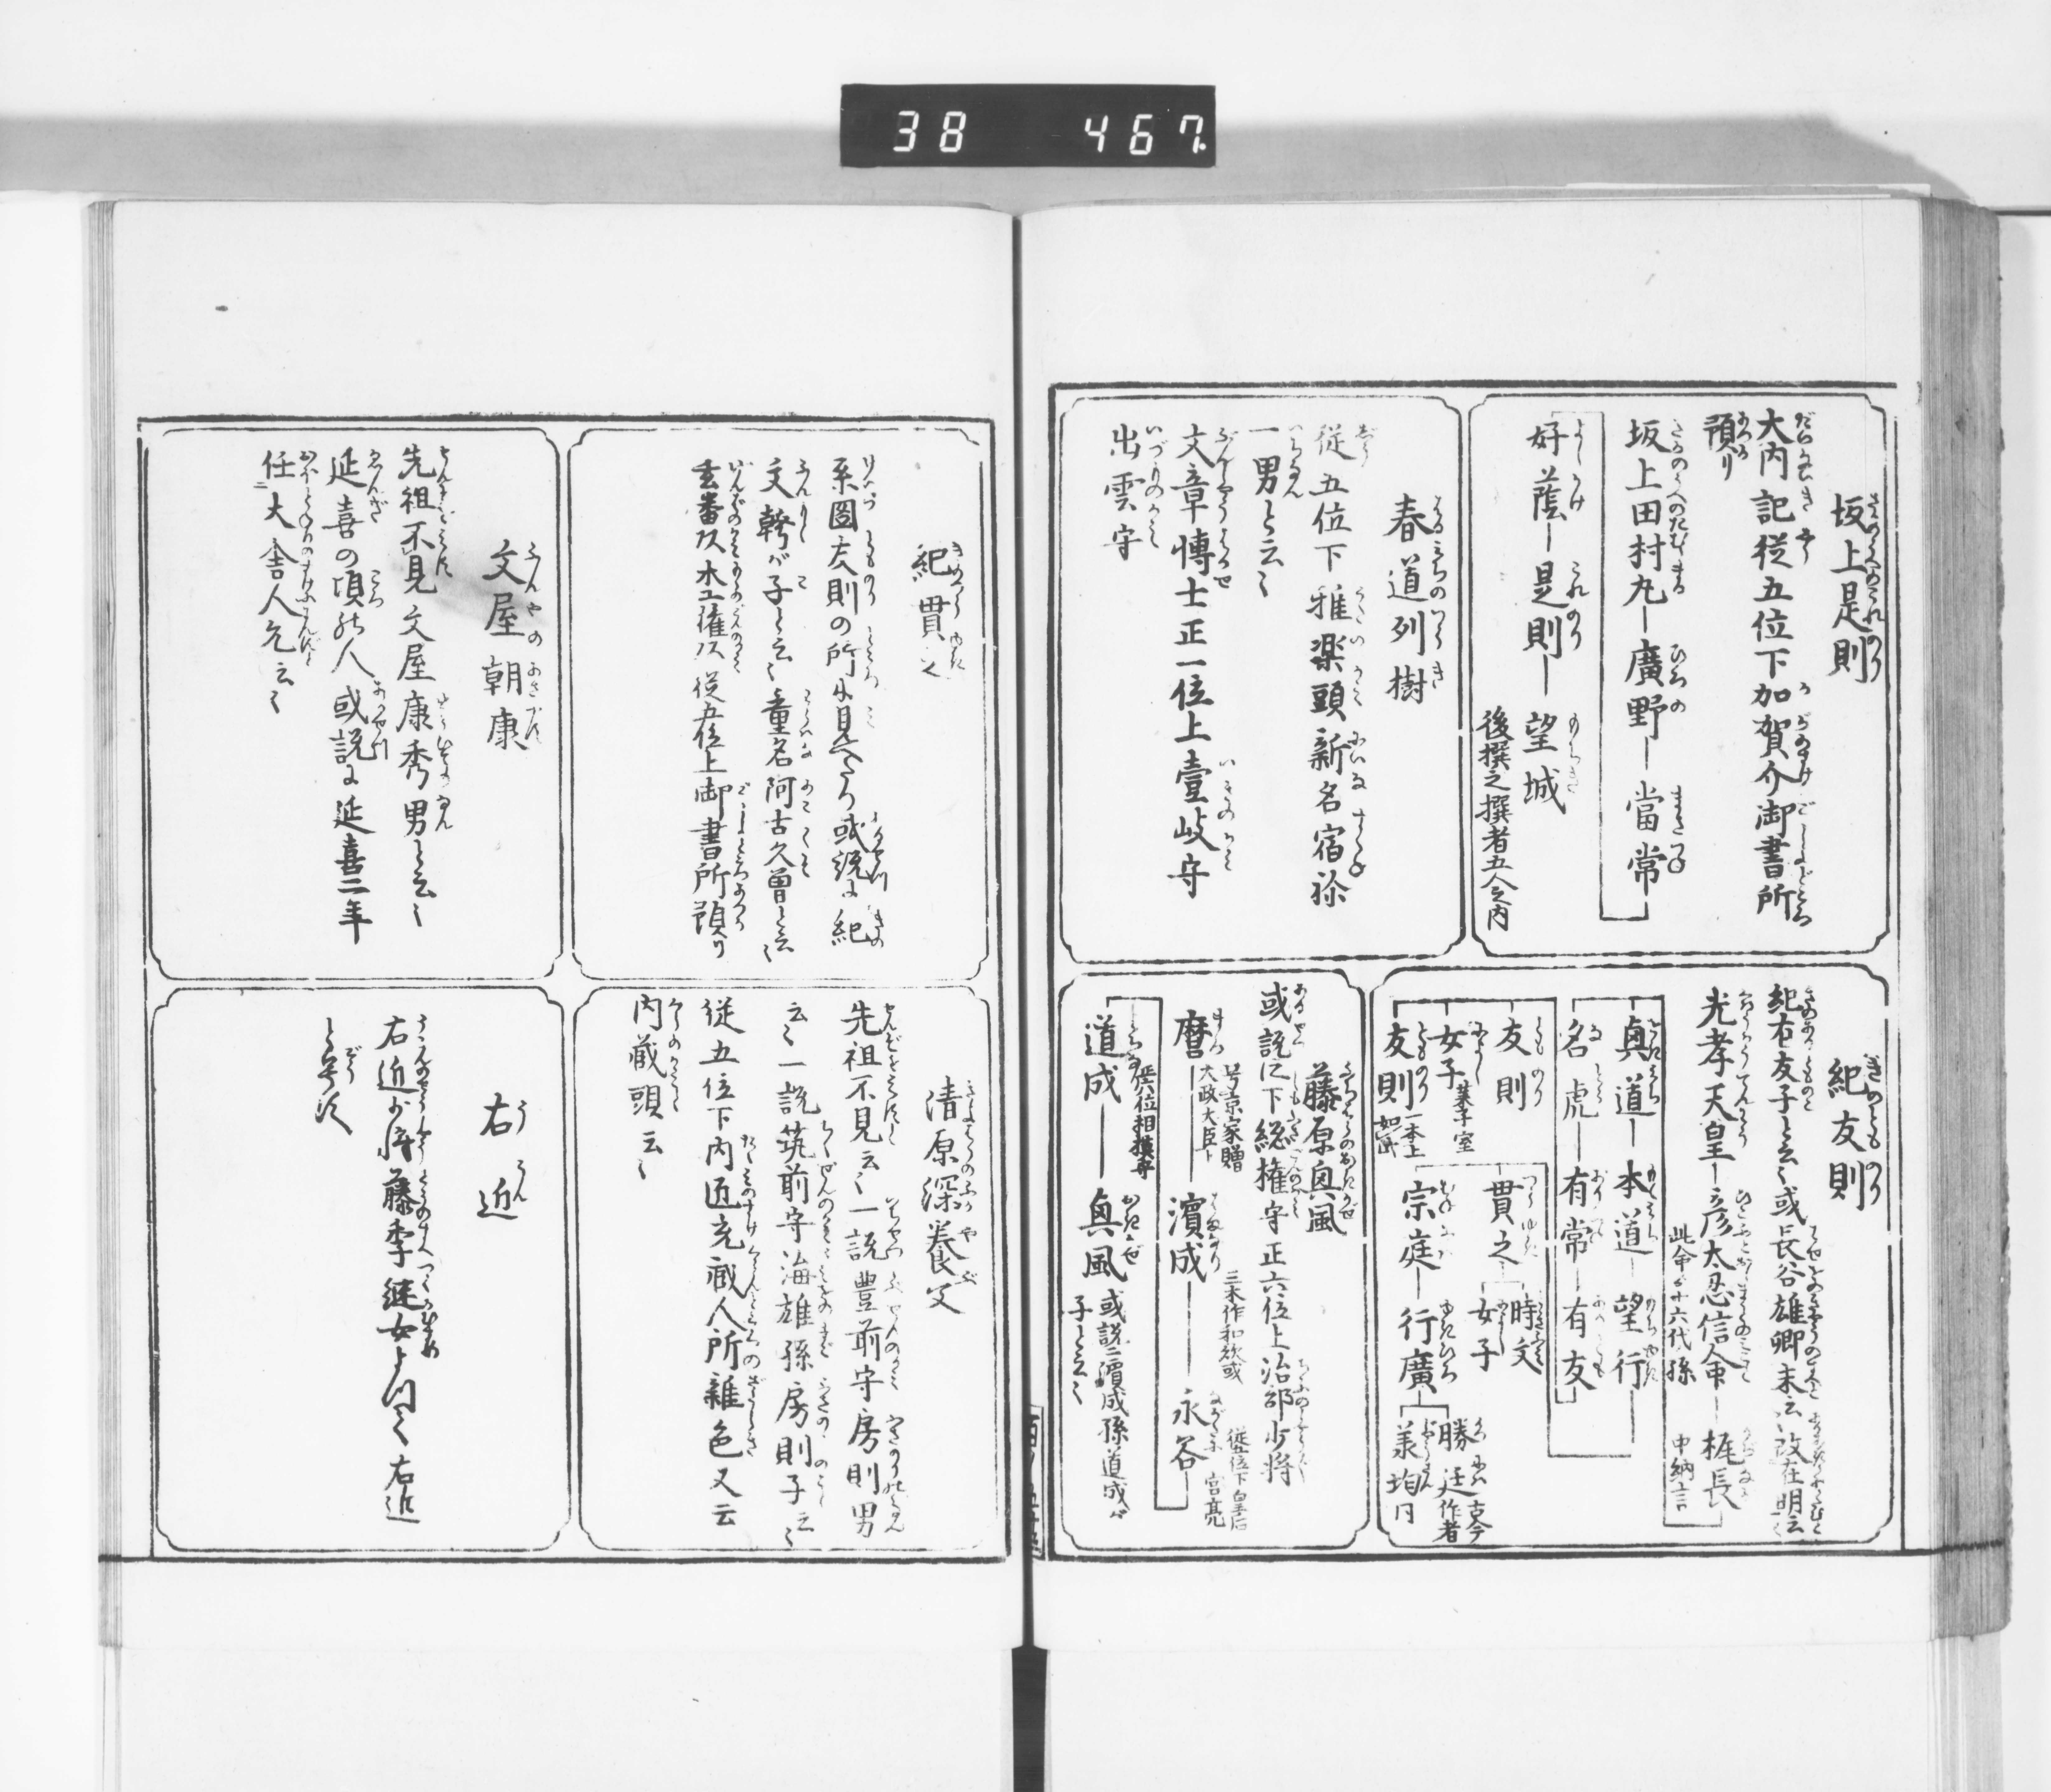 38 467
坂上是則
大内記従五位下加賀介御書所
預り
坂上田村丸―廣野―當常
好蔭―是則―望城
後撰之撰者五人之内
春道列樹
従五位下雅楽頭新名宿祢
一男と云〻
文章博士正一位上壹岐守
出雲守
紀友則
紀有友子と云〻或長谷雄卿末云〻改在明云〻
光孝天皇―彦太忍信人命―梶長
此命ゟ廿六代孫
中納言
眞道―本道―望行
名虎―有常―有友
友則
女子
友則
貫之
時文
女子
宗庭―行廣
勝廷
古今作者
藤原興風
或説に下総権守正六位上治部少将
麿―濱成―永谷
号京家贈
大政大臣
三木作和歌或
従五位下皇后
宮亮
道成―興風
従八位相摸守
或説ニ濱成孫道成ガ
子と云〻
紀貫之
系圖友則の所に見へたり或説に紀
文幹が子と云〻童名阿古久曽と云〻
玄番頭木工権頭従五位上御書所預り
文屋朝康
先祖不見文屋康秀男と云〻
延喜の頃の人或説に延喜二年
任大舎人允云〻
清原深養父
先祖不見云〻一説豊前守房則男
云〻一説筑前守海雄孫房則子云〻
従五位下内匠允蔵人所雜色又云
内蔵頭云〻
右近
右近少将藤季縄女よつて右近
と号す